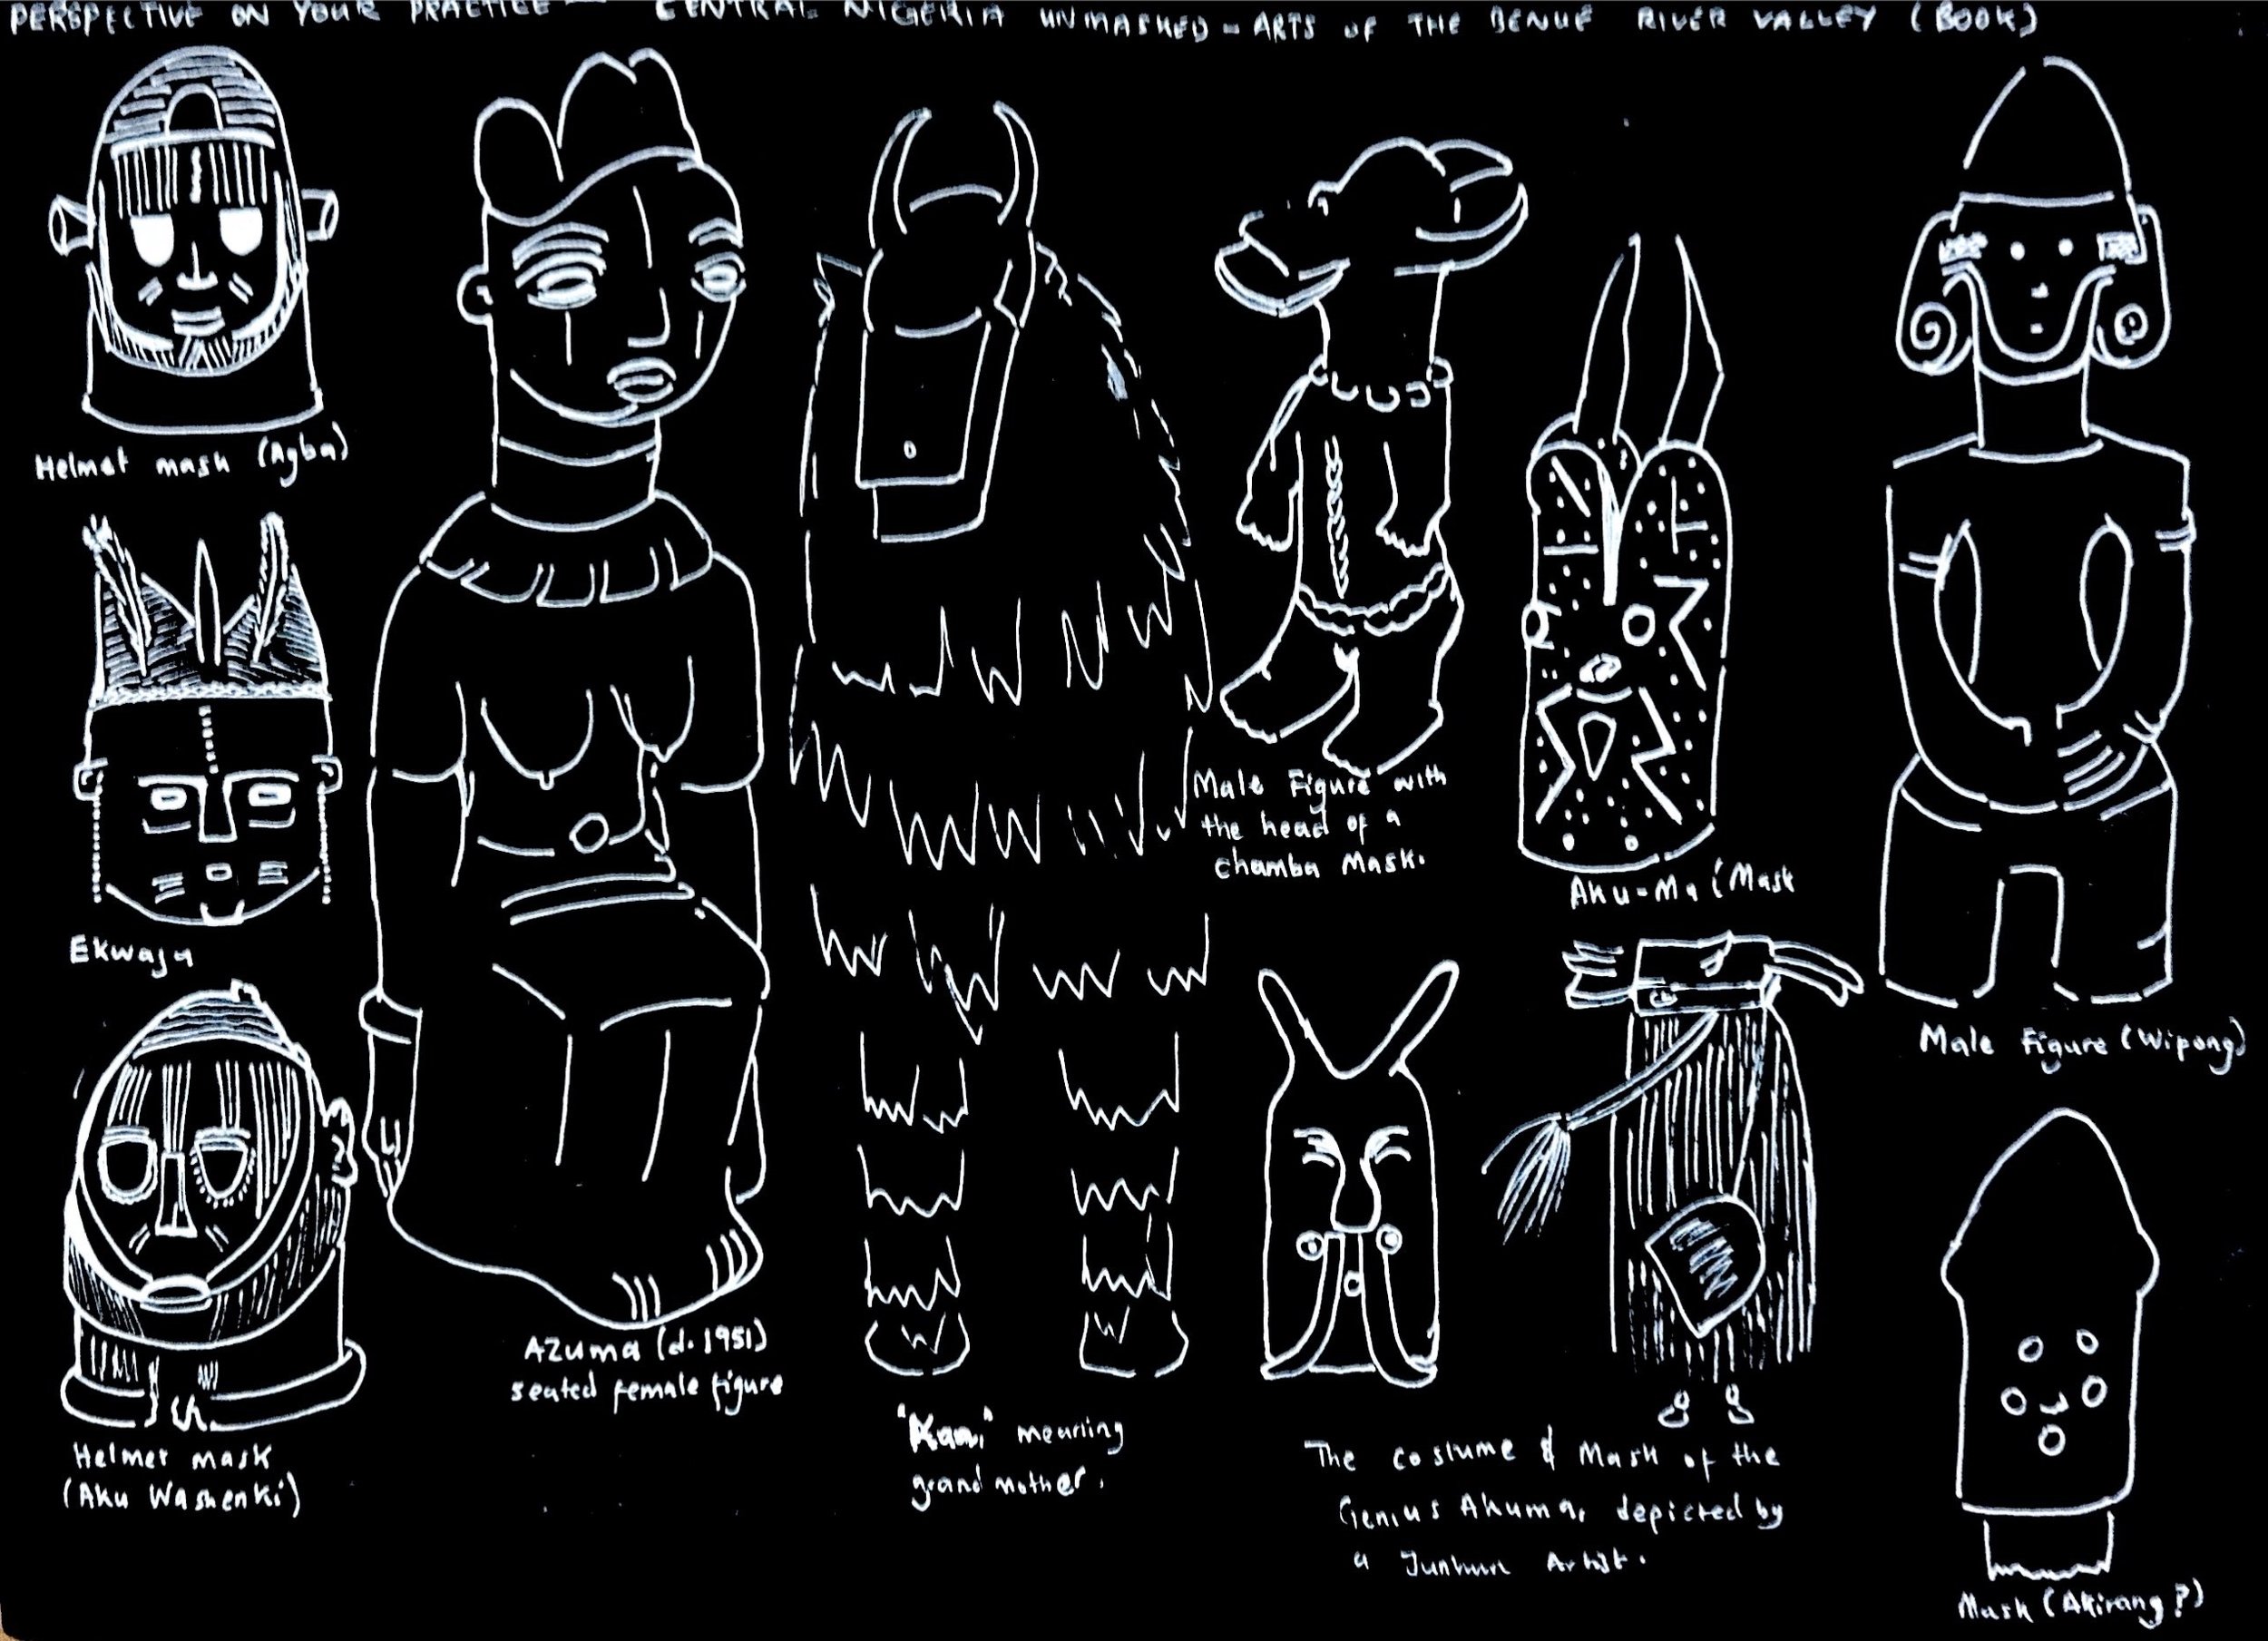 PERSPECTIVE ON YOUR PRACTICE - CENTRAL NIGERIA UNMASKED - ARTS OF THE BENUE RIVER VALLEY (BOOK)
Helmet mask (Agba)
Ekwaja
Helmet mask
(Aku Washenki)
Azuma (d. 1951)
seated female figure
"Kam" meaning
grand mother.
Male Figure with
the head of a
chamba Mask.
Aku-Ma'i Mask
The costume & Mask of the
Genius Akuma, depicted by
a Junkun Artist.
Male Figure (Wipong)
Mask (Akirang?)